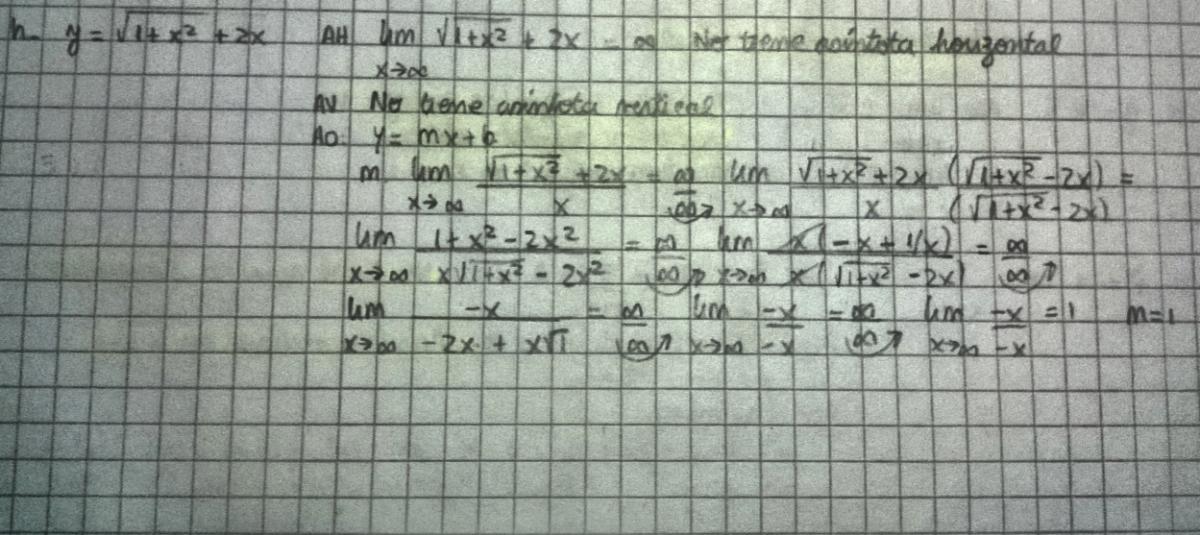 h- y = √(1+x²) + 2x AH lim x→∞ √(1+x²) + 2x = ∞ No tiene asíntota horizontal
AV No tiene asíntota vertical
AO. y = mx+b
m lim x→∞ (√(1+x²) + 2x)/x = ∞/∞ lim x→∞ (√(1+x²) + 2x)/x (√(1+x²) - 2x)/(√(1+x²) - 2x) =
lim x→∞ (1 + x² - 2x²)/(x√(1+x²) - 2x²) = ∞/∞ lim x→∞ x(-x + 1/x)/x(√(1+x²) - 2x) = ∞/∞
lim x→∞ -x/(-2x + x√1) = ∞/∞ lim x→∞ -x/-x = ∞/∞ lim x→∞ -x/-x = 1 m=1